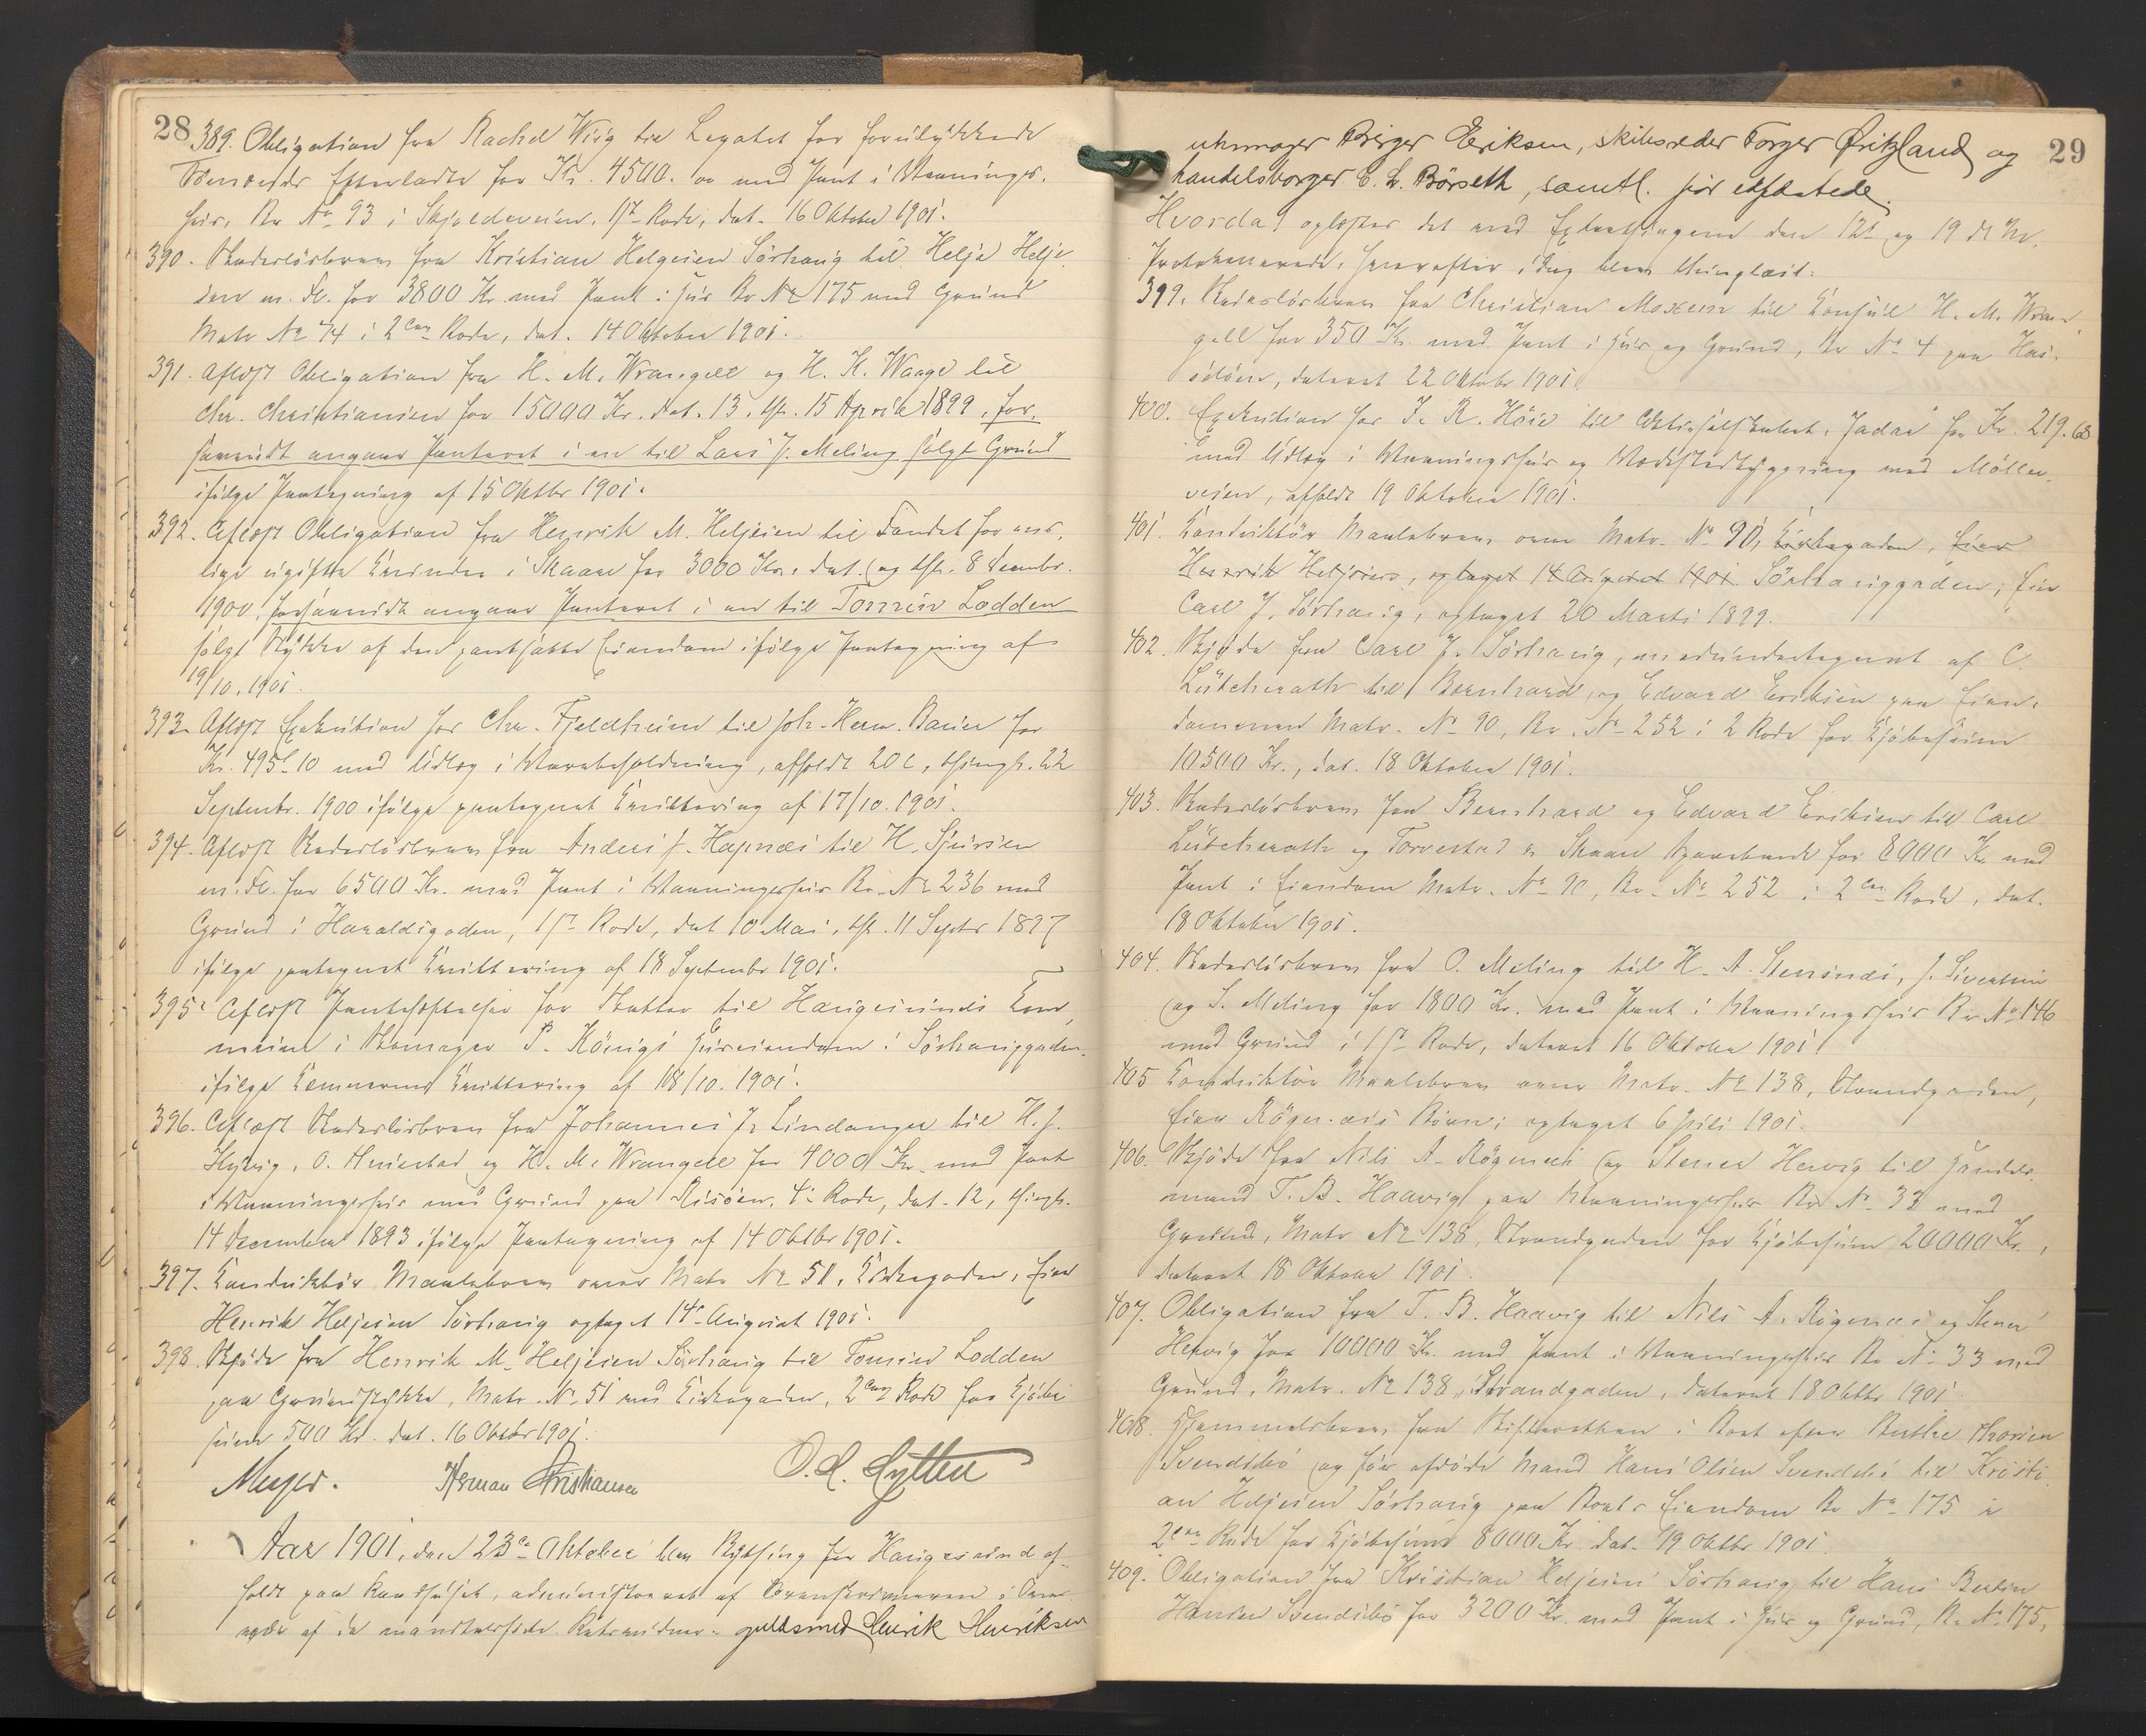 28
389. Obligation fra Rachel Wiig til Legatet for forulykkede
Efterladte for Kr. 4500.00 med Pant i Vaanings-
hus, Br No 93 i Skjoldeveien, 1ste Rode, dat. 16 Oktober 1901.
390. Skadesløsbrev fra Kristian Helgesen Sörhaug til Helje Helje-
sen m. Fl. for 3800 Kr. med Pant i Hus Br No 175 med Grund
Matr No 74 i 2den Rode, dat. 14 Oktober 1901.
391. Aflyst Obligation fra H. M. Wrangell og H. K. Waage til
Chr. Christiansen for 15000 Kr. dat. 13, thl. 15 April 1899, for-
saavidt angaar Panteret i en til Lars J. Meling solgt Grund
ifølge Paategning af 15 Oktbr 1901.
392. Aflyst Obligation fra Henrik M. Heljesen til Fondet for
ugifte Kvinder i Skaare for 3000 Kr. dat. og thl. 8 Decembr.
1900, forsaavidt angaar Panteret i en til Tonnes Lodden
solgt Stykke af den pantsatte Eiendom ifølge Paategning af
19/10. 1901.
393. Aflyst Exekution for Chr. Fjeldheim til Joh. Herm. Bauer for
Kr. 495.10 med Udlæg i Varebeholdning, afholdt 20de, thingl. 22
Septembr. 1900 ifølge paategnet Kvittering af 17/10. 1901.
394. Aflyst Skadesløsbrev fra Anders J. Hapnæs til H. Sjursen
m. Fl. for 6500 Kr. med Pant i Vaaningshus Br. No 236 med
Grund i Haraldsgaden, 1ste Rode, dat 10 Mai, thl. 11 Septr 1897
ifølge paategnet Kvittering af 18 Septembr 1901.
395. Aflyst Panteheftelse for Skatter til Haugesunds Kom-
mune i Skomager P. Königs Huseiendom i Sörhauggaden
ifølge Kemnerens Kvittering af 18/10. 1901.
396. Aflyst Skadesløsbrev fra Johannes J. Lindanger til H. J.
O. Husestad og H. M. Wrangell for 4000 Kr. med Pant
i Vaaningshus med Grund paa Risöen, 4de Rode, dat. 12, thingl.
14 December 1893 ifølge Paategning af 14 Oktbr 1901.
397. Konduktör Maalebrev over Matr No 51, Kirkegaden, Eier
Henrik Heljesen Sörhaug optaget 14de August 1901.
398. Skjöde fra Henrik M. Heljesen Sörhaug til Tonnes Lodden
paa Grundstykke, Matr. No 51 ved Kirkegaden, 2den Rode for Kjöbe-
sum 500 Kr. dat. 16 Oktbr 1901.
Meyer. Herman Christiansen O. L. Lytten
Aar 1901, den 23de Oktober blev Bything for Haugesund af-
holdt paa Raadhuset, administreret af Sorenskriveren i Over-
vær af de Retsvidner: guldsmed Henrik Henriksen
29
uhrmager Birger Eriksen, skibsreder Torger Øritzland og
handelsborger C. L. Börseth, samtl. før edfæstede.
Hvorda oplæstes det ved Extrathingene den 12te og 19 ds Md.
Protokollerede, hvorefter idag blev thinglæst:
399. Skadesløsbrev fra Christian Moxem til Konsul H. M. Wran-
gell for 350 Kr. med Pant i Hus og Grund, Br No 4 paa Has-
selöen, dateret 22 Oktobr 1901.
400. Exekution for J. R. Höie til Aktieselskabet "Jadar" for Kr. 219.68
med Udlæg i Vaaningshus og Værkstedbygning ved Möller-
veien, afholdt 19 Oktober 1901.
401. Konduktör Maalebrev over Matr. No 90, Kirkegaden, Eier
Henrik Heljesen, optaget 14 August 1901 Sörhauggaden, Eier
Carl J. Sörhaug, optaget 20 Marts 1899.
402. Skjöde fra Carl J. Sörhaug, medundertegnet af C.
Lütcherath til Bernhard og Edvard Eriksen paa Eien-
dommen Matr. No 90, Br. No 252 i 2 Rode for Kjöbesum
10500 Kr., dat. 18 Oktober 1901.
403. Skadesløsbrev fra Bernhard og Edvard Eriksen til Carl
Lütcherath og Torvestad & Skaare Sparebank for 8000 Kr. med
Pant i Eiendom Matr. No 90, Br. No 252 i 2den Rode, dat.
18 Oktober 1901.
404. Skadesløsbrev fra O. Meling til H. A. Stensnæs, J. Sivertsen
og S. Meling for 1800 Kr. med Pant i Vaaningshus Br No 146
med Grund i 1ste Rode, dateret 16 Oktober 1901.
405 Konduktör Maalebrev over Matr. No 138, Strandgaden,
Eier Rögenæs's Börn; optaget 6 Juli 1901.
406. Skjöde fra Nils A. Rögenæs og Stener Hervig til Handels-
mand T. B. Haavig paa Vaaningshus Br No 33 med
Grund, Matr No 138, Strandgaden for Kjöbesum 20000 Kr.,
dateret 18 Oktober 1901.
407. Obligation fra T. B. Haavig til Nils A. Rögenæs og Stener
Hervig for 10000 Kr. med Pant i Vaaningshus Br No 33 med
Grund, Matr. No 138, Strandgaden, dateret 18 Oktbr 1901.
408. Hjemmelsbrev fra Skifteretten i Boet efter Berthe Thorsen
Svendsbö og før afdöde Mand Hans Olsen Svendsbö til Kristi-
an Heljesen Sörhaug paa Boets Eiendom Br No 175 i
2den Rode for Kjöbesum 8000 Kr. dat. 19 Oktbr 1901.
409. Obligation fra Kristian Heljesen Sörhaug til Hans Bertin
Hansen Svendsbö for 3200 Kr. med Pant i Hus og Grund, Br No 175,